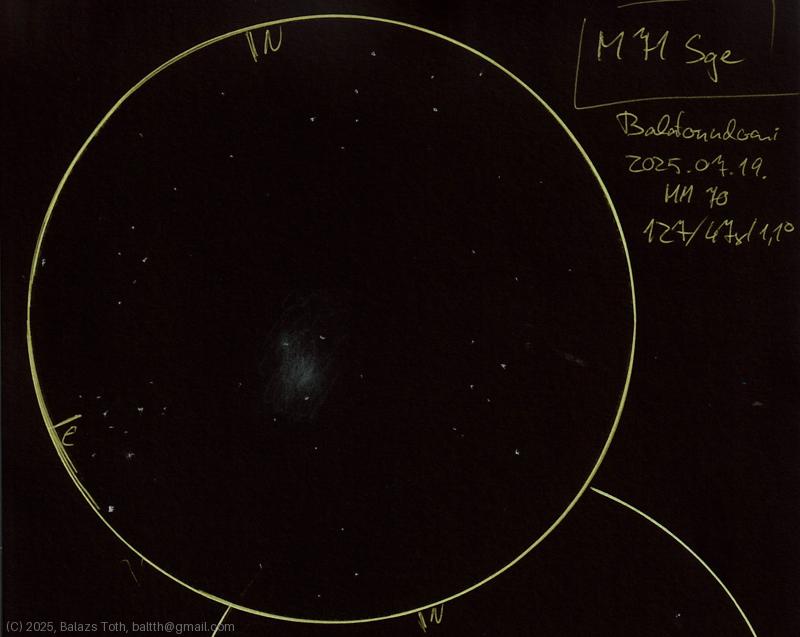 N
M 71 Sge
2025.07.19.
127/47x/1,1°
E
N
(C) 2025, Balazs Toth, baltth@gmail.com